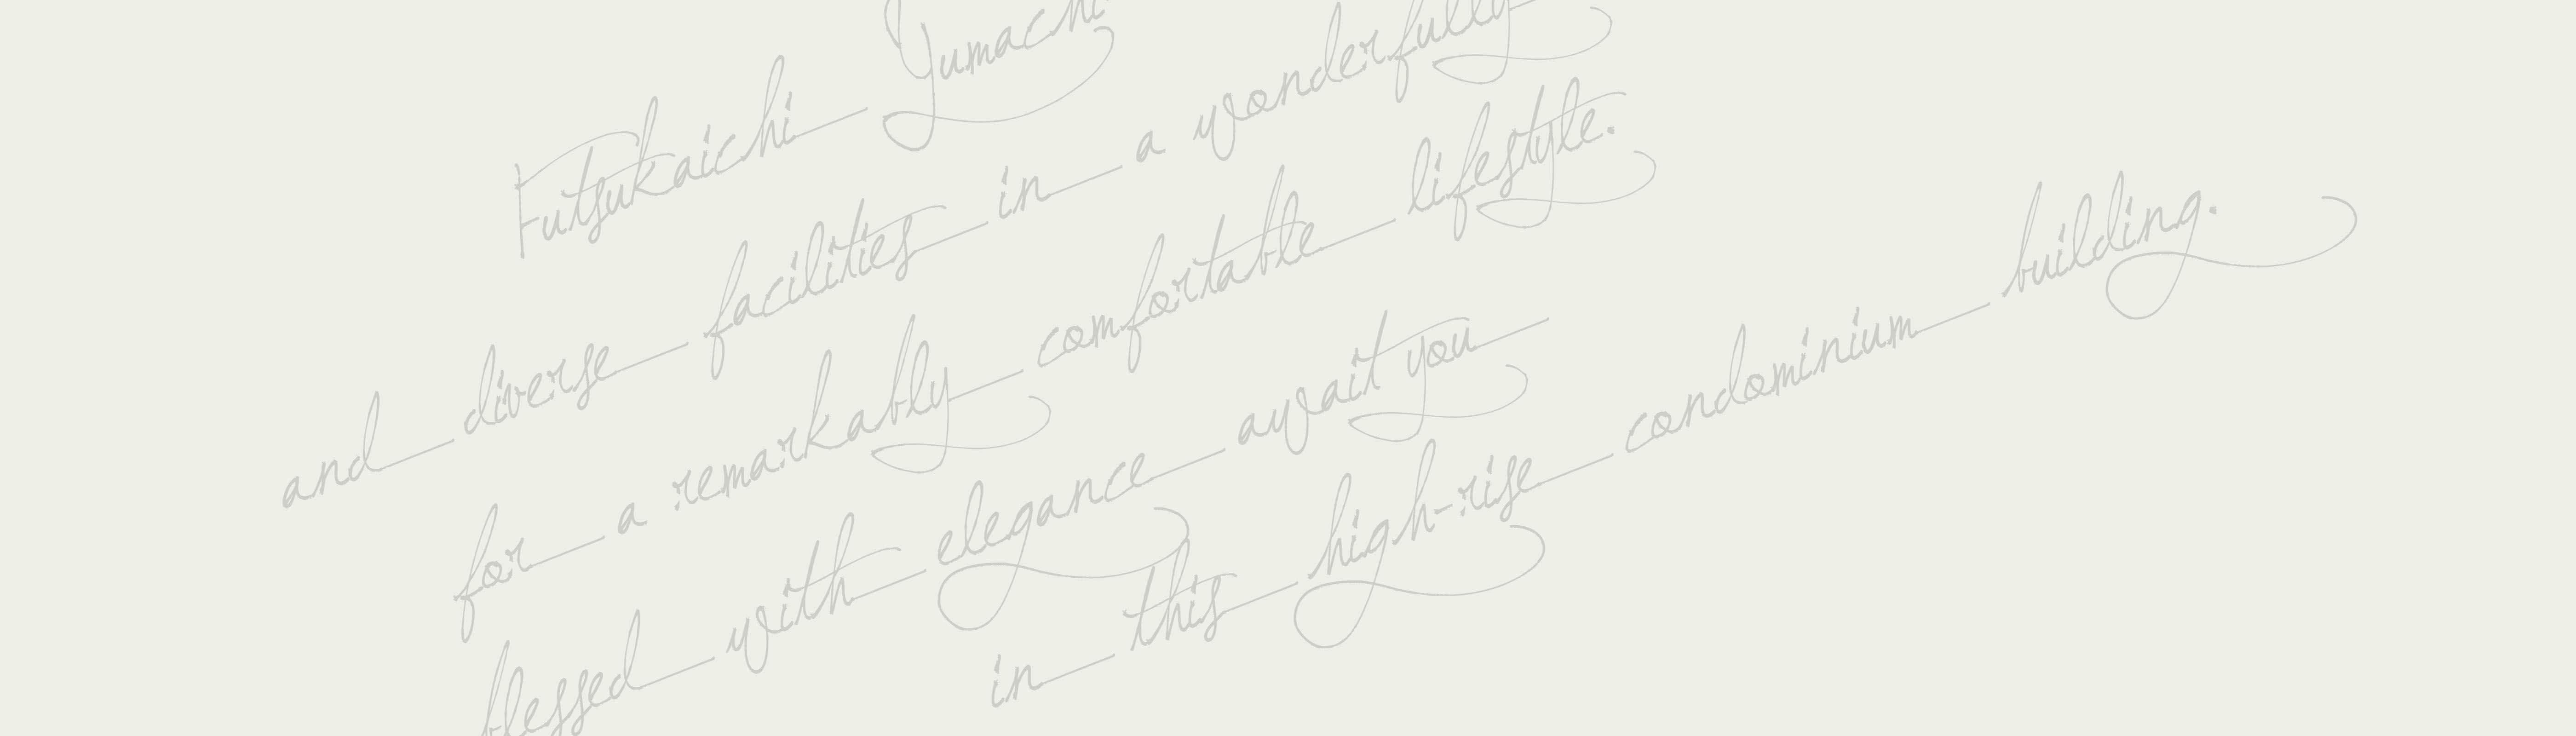 Futsukaichi Jumachi
and diverse facilities in a wonderfully
for a remarkably comfortable lifestyle.
blessed with elegance await you
in this high-rise condominium building.